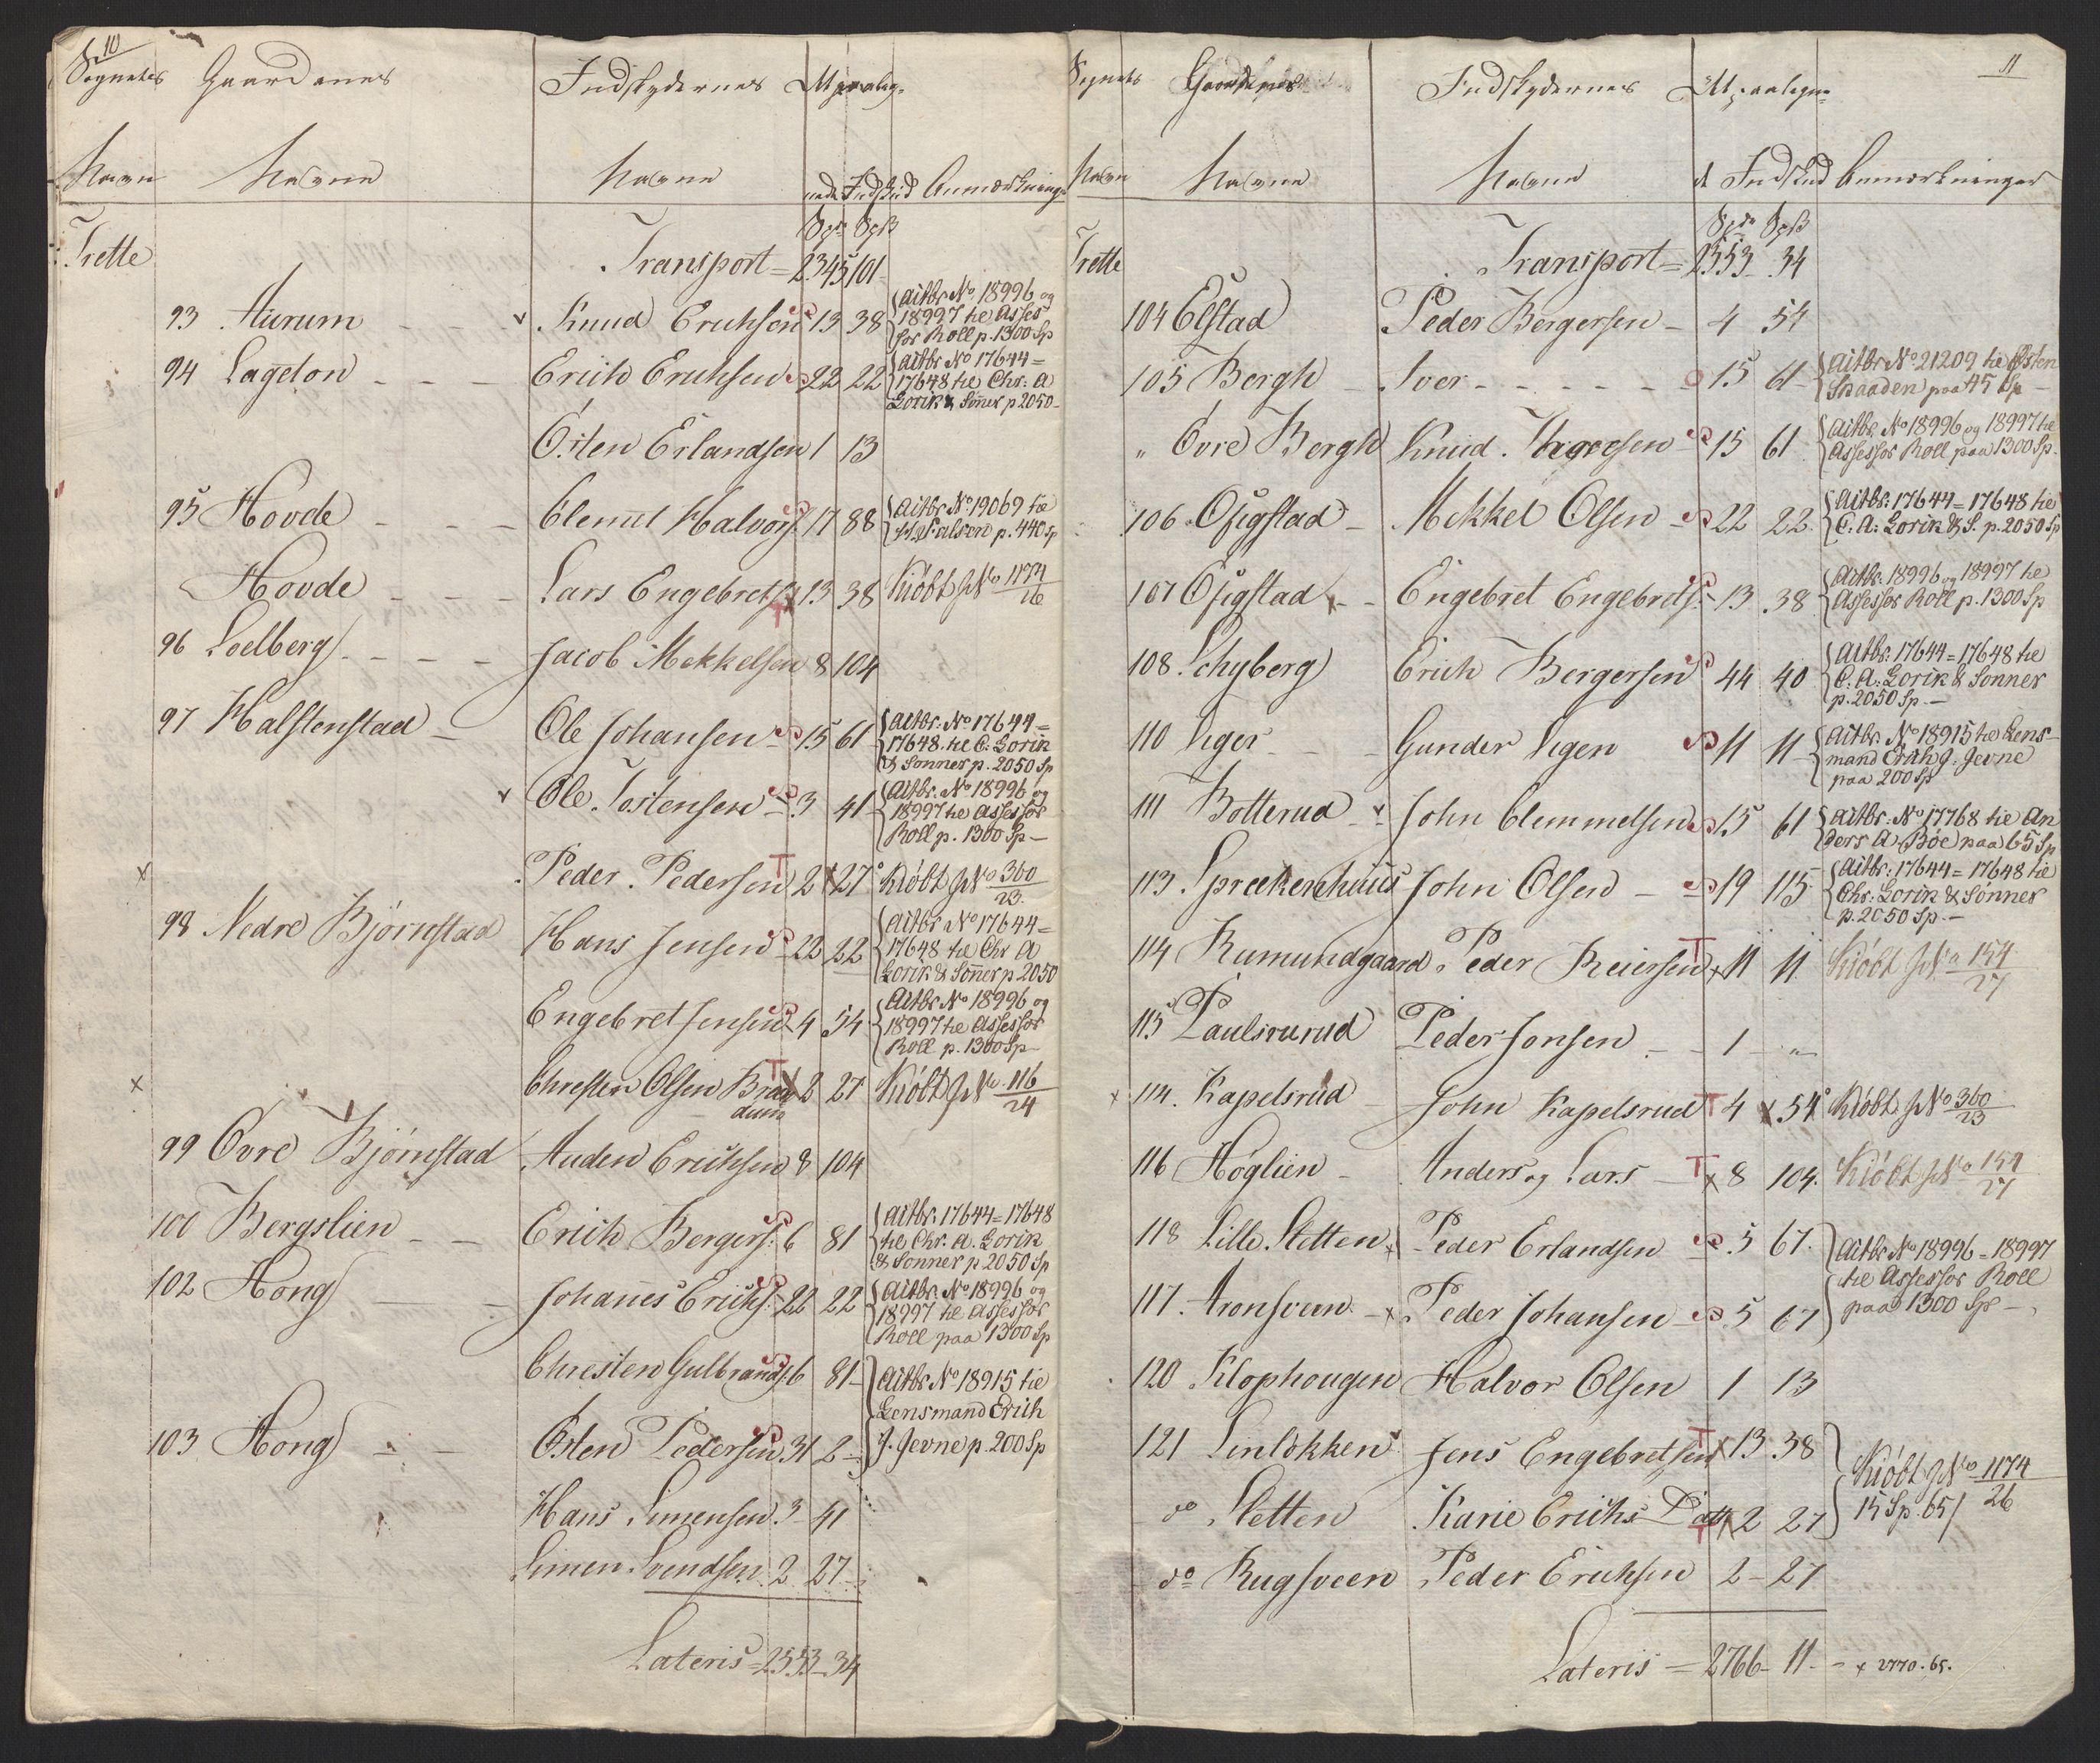 10
Sognetes Gaardenes Indskydernes Utpaaleg-
Navn Navne Navne nede Indskud Anmærkninge
Spd. Sk
Trette Transport = 2345 101
93 Aurum - - - Knud Erichsen 13 38 Aitbr. No 18996 og
18997 til Asses
sor Roll p. 1300 Sp
94 Lageton - - - Erich Erichsen 22 22 Aitbr No 17644 =
17648 til Chr: A
Lorik & Sönner p 2050 -
Østen Erlandsen 1 13
95 Hovde - - - Clemet Halvors. 17 88 Aitbr No 19069 til
Falsen p. 440 Sp
Hovde - - - Lars Engebrets. 13 38 Kiöbt No 1174/26
96 Loelberg - - - Jacob Mekkelsen 8 104
97 Halstenstad - Ole Johansen - 15 61 Aitbr: No 17644 =
17648. til C. Lorik
& Sonner p. 2050 Sp
Ole Tostensen - 3 41 Aitbr. No 18996 og
18997 til Assessor
Roll p. 1300 Sp -
x Peder Pedersen T 2 x 27 Kiöbt No 360/23
98 Nedre Bjørnstad Hans Jensen - 22 22 Aitbr No 17644 =
17648 til Chr A
Lorik & Sonner p. 2050
Engebret Jensen - 4 54 Aitbr No 18996 og
18997 til Assessor
Roll p. 1300 Sp -
x Christen Olsen Braa T x 2 27 Kiöbt No 116/24
dum
99 Ovre Bjørnstad Auden Erichsen 8 104
100 Bergslien - - Erich Bergers: 6 81 Aitbr. 17644 = 17648
til Chr. A. Lorik
& Sonner p 2050 Sp
102 Hong - Johanes Erichs: 22 22 Aitbr. No 18996 og
18997 til Assessor
Roll paa 1300 Sp
Christen Gulbrands. 6 81 - Aitbr No 18915 til
Lensmand Erich
103 Hong - - Østen Pedersen 31 2 - J. Jevne p. 200 Sp
Hans Simensen 3 - 41
Simen Svendsen 2 27 -
Lateris = 2553 - 34
11
Sognets Gaardenes Indskydernes Utpaalegne-
Navn Navne Navne de Indskud Anmærkninger
Spd. Sk
Trette Transport = 2553 34
104 Elstad Peder Bergersen - 4 54
105 Bergh - Iver - - - - - 15 61 - Aitbr No 21209 til Østen
Skaaden paa 45 Sp -
" Øvre Bergh Knud Iversen 15 61 Aitbr. No 18996 og 18997 til
Assessor Roll paa 1300 Sp.
106 Ofigstad - Mekkel Olsen - 22 22 Aitbr: 17644 = 17648 til
C. A: Lorik & S. p. 2050 Sp
107 Ofigstad - - Engebret Engebrets: - 13 38 Aitbr. 18996 og 18997 til
Assessor Roll p. 1300 Sp
108 Schyberg Erich Bergersen 44 40 Aitbr: 17644 = 17648 til
C. A: Lorik & Sonner
p. 2050 Sp. -
110 Iger - - Gunder Igen 11 11 Aitbr. No 18915 til Lens-
mand Erich J. Jevne
paa 200 Sp
111 Botterud - John Clemmelsen 15 61 Aitbr: No 17768 til An
ders A. Böe paa 65 Sp
113 Spreekenhuus John Olsen - 19 115 Aitbr: 17644 = 17648 til
Chr: Lorik & Sönner
p. 2050 Sp. -
114 Rumundgaard Peder Reiersen T x 11 11 Kiöbt No 154/27
115 Paulsrurud Peder Jonsen - - 1 - "
x 114. Kapelsrud John Kapelsrud T 4 x 54 Kiöbt No 360/23
116 Høglien - Anders og Lars - T x 8 104. Kiöbt No 154/27
118 Lille Stetten x Peder Erlandsen 5 67. Aitbr No 18996 = 18997
til Assessor Roll
117. Aronsveen - x Peder Johansen - 5 67 paa 1300 Sp -
120 Klophougen Halvor Olsen 1 13
121 Linløkken Jens Engebretsen T x 13 38 Kiöbt No 1174/26
do Sletten Karie Erichs Dat T x 2 27 15 Sp. 65/
do Rugsveen Peder Erichsen 2 - 27
Lateris = 2766 - 11 - - x 2770. 65.